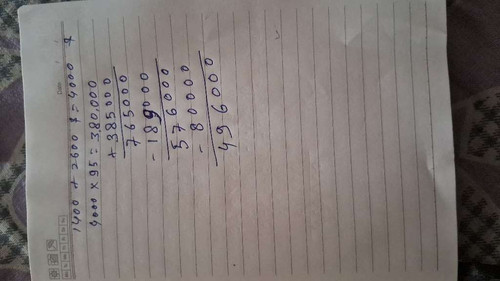 1400 + 2600 $ = 4000 $
4000 x 95 = 380.000
+ 385000
765000
- 189000
576000
- 80000
496000